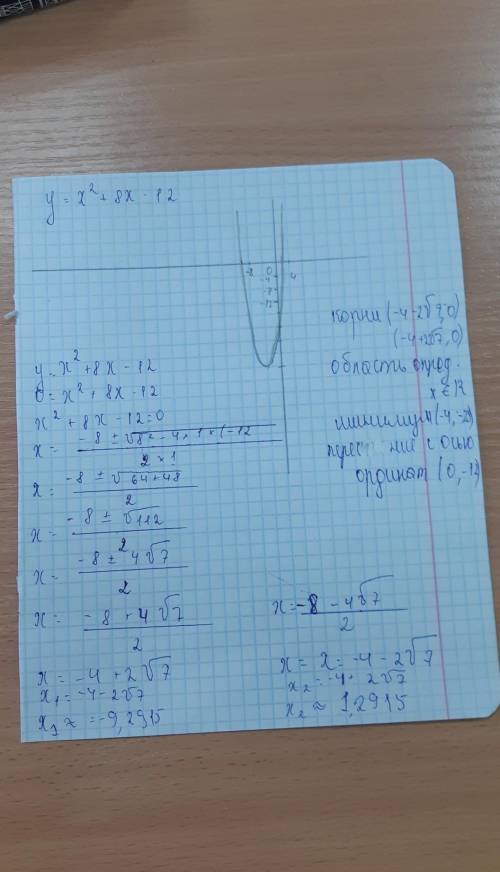 y = x² + 8x - 12
-8 0 4
-4
-8
-12
y = x² + 8x - 12
0 = x² + 8x - 12
x² + 8x - 12 = 0
x = (-8 ± √8² - 4 × 1 × (-12) / (2 × 1)
x = (-8 ± √64+48) / 2
x = (-8 ± √112) / 2
x = (-8 ± 4√7) / 2
x = (-8 + 4√7) / 2
x = -4 + 2√7
x₁ = -4 - 2√7
x₁ ≈ = -9,2915
корни (-4-2√7, 0)
(-4+2√7, 0)
область опред.
x ∈ R
минимум (-4, -28)
с осью
ординат (0, -12)
x = (-8 - 4√7) / 2
x = x = -4 - 2√7
x₂ = -4 + 2√7
x₂ ≈ 1,2915